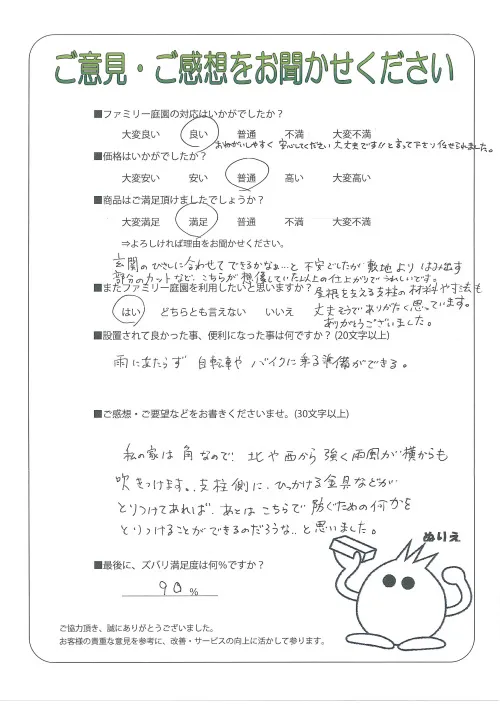 ご意見・ご感想をお聞かせください
■ファミリー庭園の対応はいかがでしたか?
大変良い 良い 普通 不満 大変不満
おねがいしやすく 安心してください大丈夫です!!と言って下さり任せられました。
■価格はいかがでしたか?
大変安い 安い 普通 高い 大変高い
■商品はご満足頂けましたでしょうか?
大変満足 満足 普通 不満 大変不満
⇒よろしければ理由をお聞かせください。
玄関のひさしに合わせてできるかなぁ…と 不安でしたが 敷地より はみ出す
部分のカットなど、こちらが想像していた以上の仕上がりでうれしいです。
■またファミリー庭園を利用したいと思いますか?
屋根を支える支柱の材料や寸法も
はい どちらとも言えない いいえ
丈夫そうでありがたく思っています。
ありがとうございました。
■設置されて良かった事、便利になった事は何ですか? (20文字以上)
雨にあたらず 自転車や バイクに乗る準備ができる。
■ご感想・ご要望などをお書きくださいませ。(30文字以上)
私の家は 角なので 北や西から 強く雨風が横からも
吹きつけます。支柱側に、ひっかける金具などが
とりつけてあれば、あとはこちらで 防ぐための何かを
とりつけることができるのだろうな、と思いました。
ぬりえ
■最後に、ズバリ満足度は何%ですか?
90 %
ご協力頂き、誠にありがとうございました。
お客様の貴重な意見を参考に、改善・サービスの向上に活かして参ります。